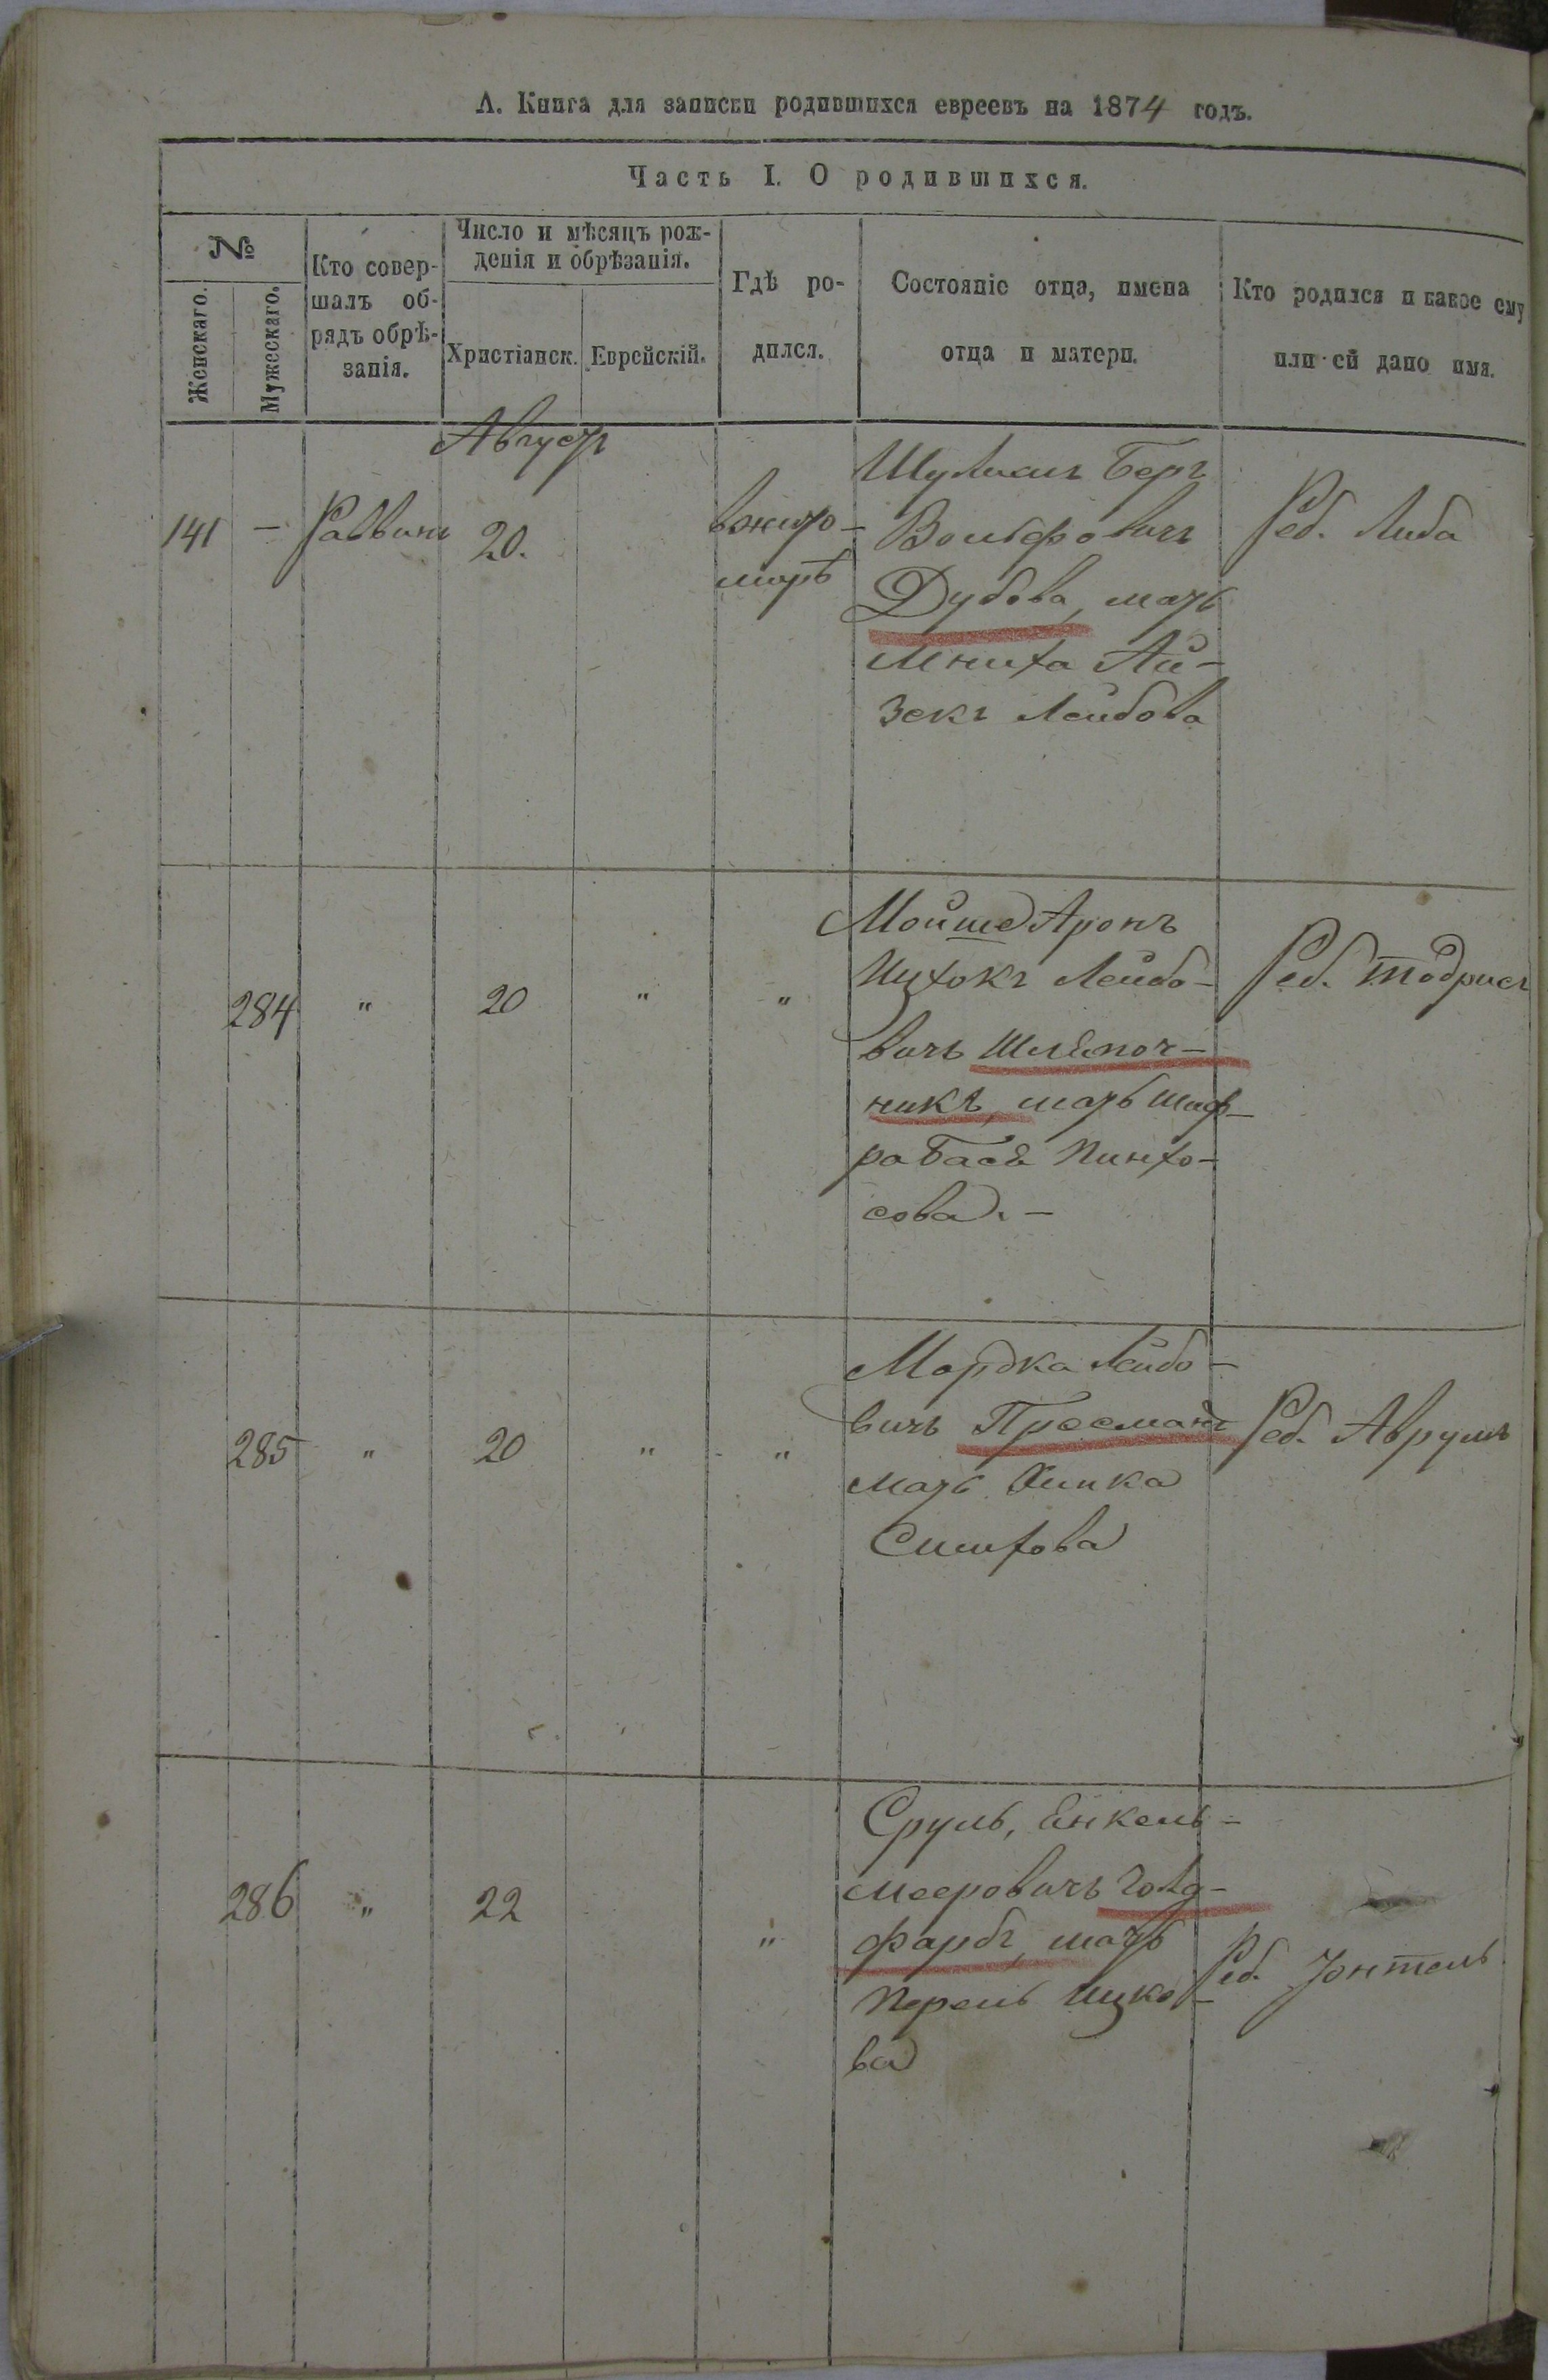 А. Книга для записки родившихся евреевъ на 1874 годъ.
Часть I. О родившихся.
№
Женскаго.
Мужескаго.
Кто совер-
шалъ об-
рядъ обрѣ-
занія.
Число и мѣсяцъ рож-
денія и обрѣзанія.
Христіанск.
Еврейскій.
Гдѣ ро-
дился.
Состояніе отца, имена
отца и матери.
Кто родился и какое ему
или ей дано имя.
Августъ
141 — Раввинъ 20.
вжито-
мірѣ
Шулимъ Беръ
Вольфовичъ
Дубова, мать
Мниха Ай-
зекъ Лейбова
Реб. Либа
284 " 20 " "
Мойше Аронъ
Ицхокъ Лейбо-
вичъ Шлепоч-
никъ, мать Шиф-
ра Бася Пинхо-
сова. —
Реб. Тодрисъ
285 " 20 " "
Мордка Лейбо-
вичъ Просманъ
мать Хинка
Симхова
Реб. Аврумъ
286 " 22 "
Сруль, Енкель-
Мееровичъ Голд-
фарбъ, мать
Перель Ицко-
ва
Реб. Іонтель